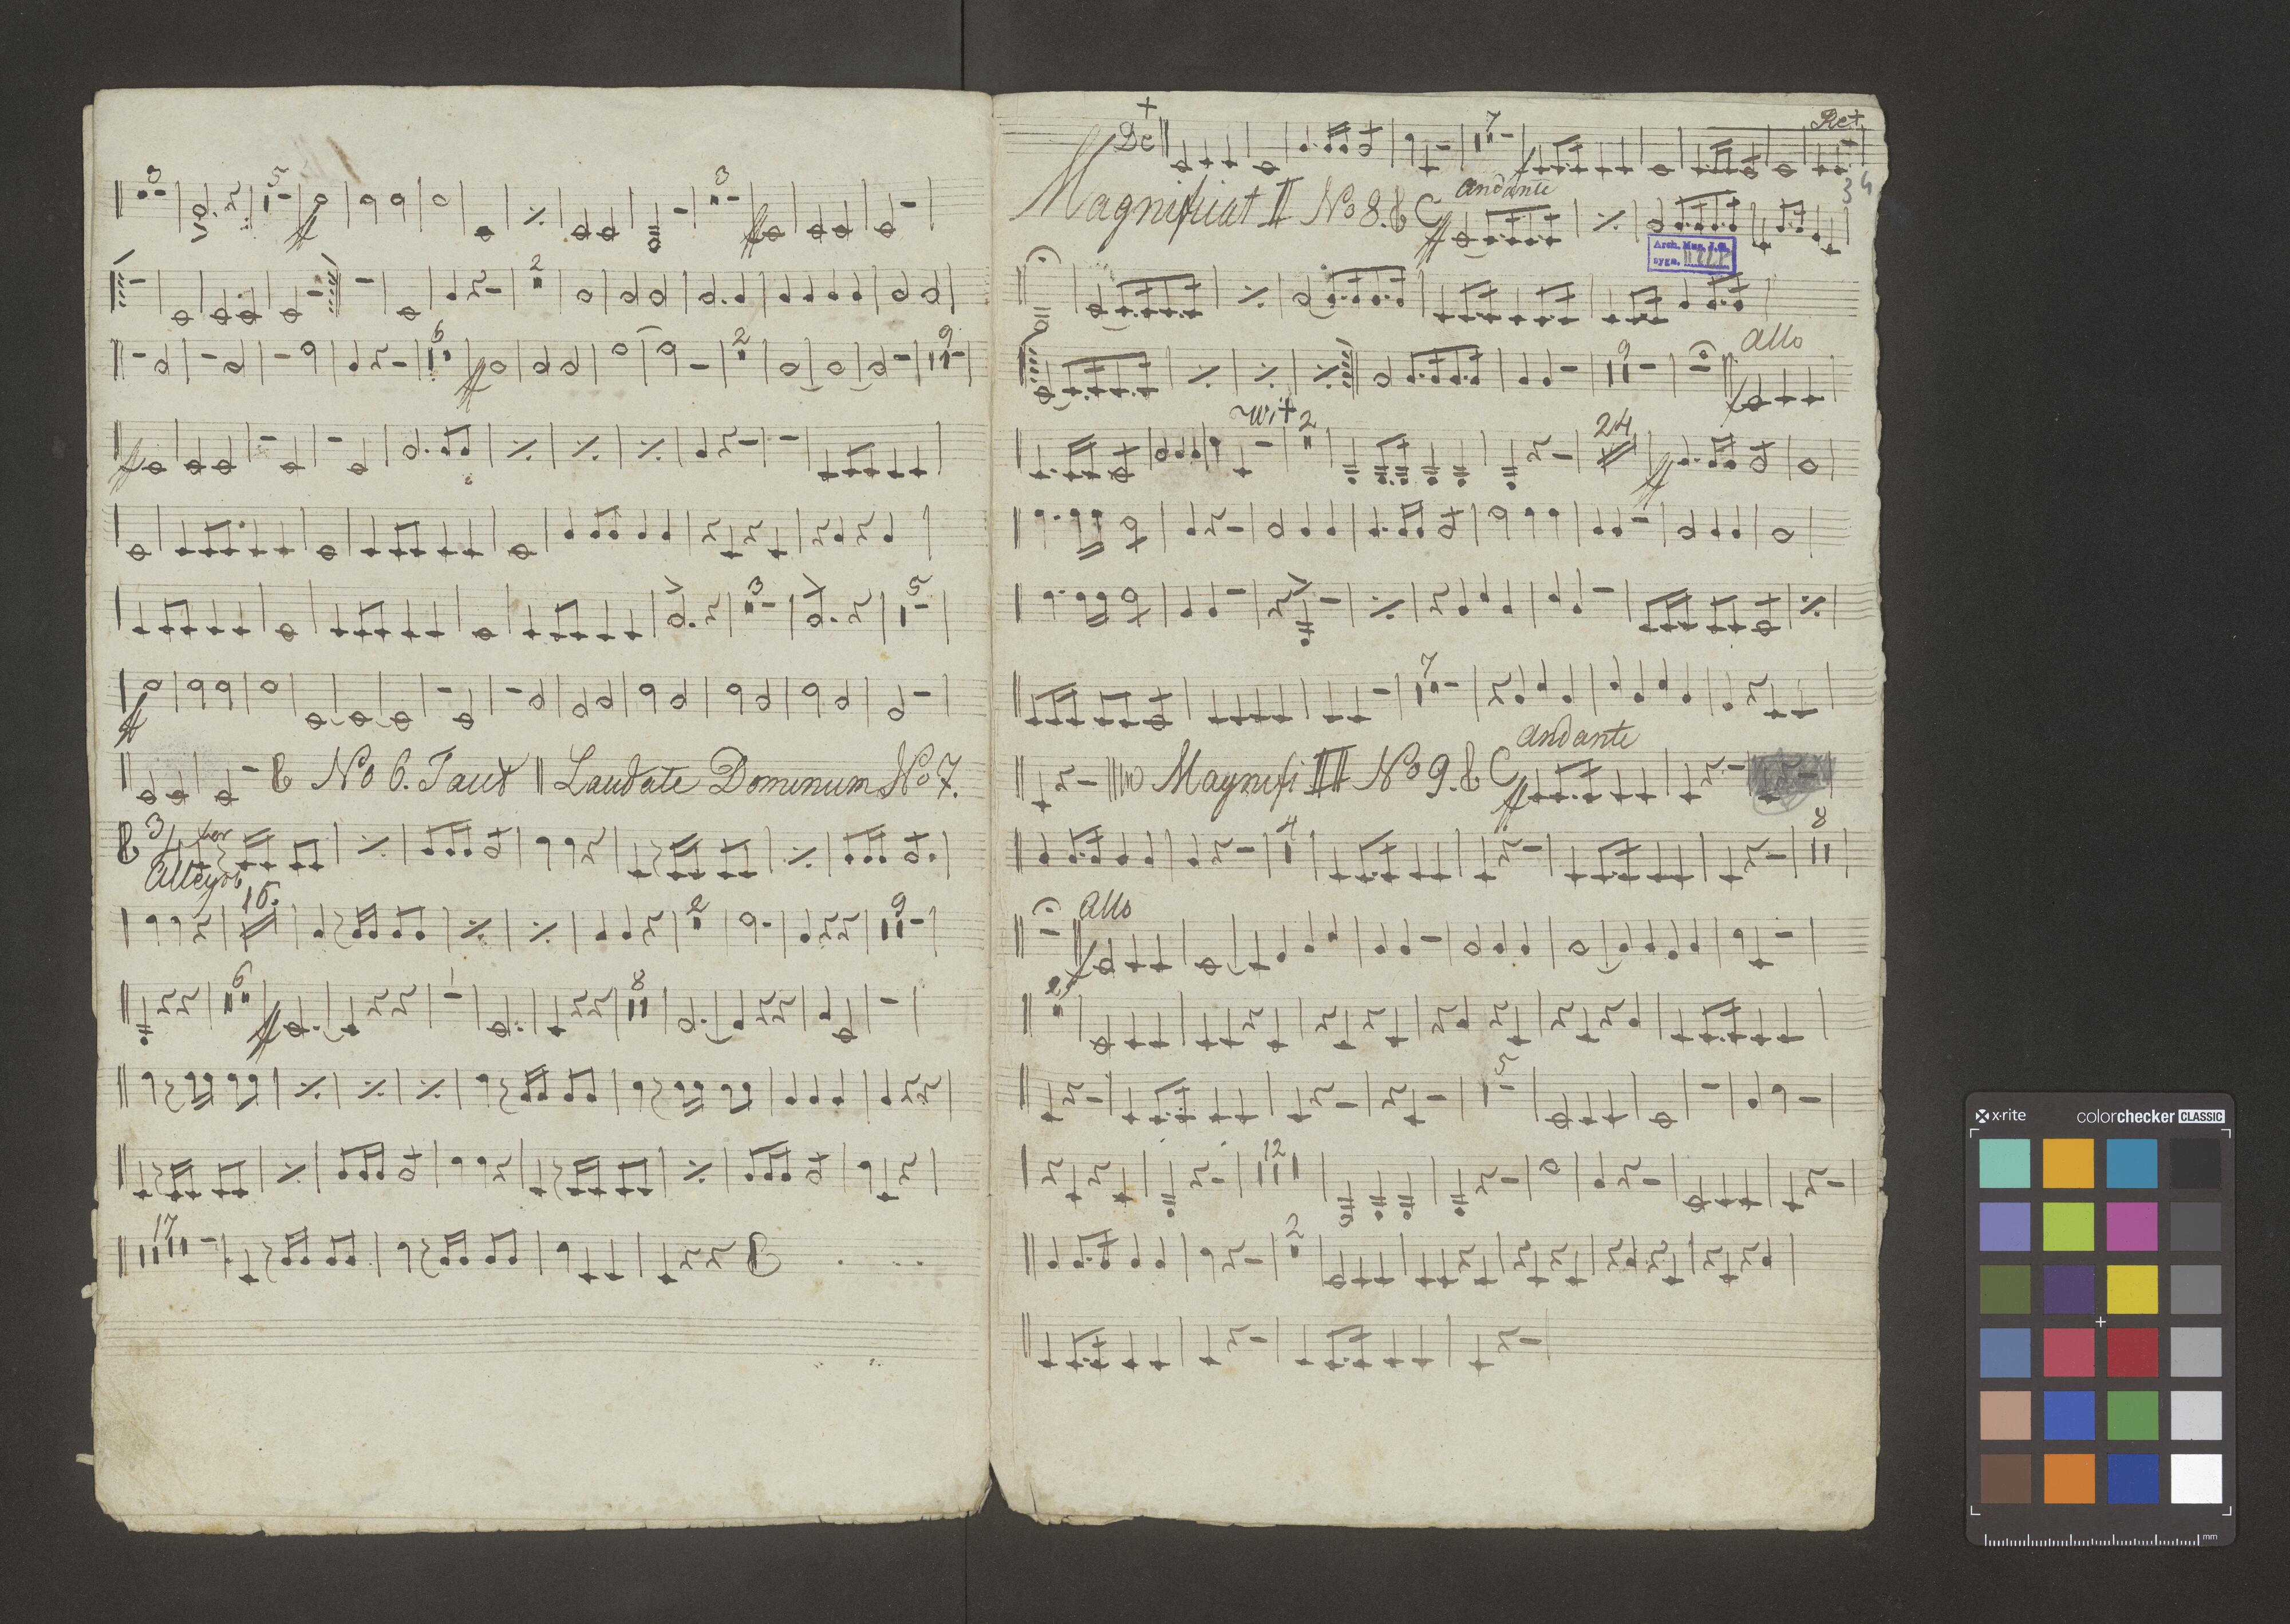 3 5 3
2
6 2 9
3 5
No 6. Taud || Laudate Dominum No 7.
3/
Allegro
16. 2 9
6 1 8
17
De 7
Magnificat II No 8. C andante
34
Arch. Mus. J.G.
sygn.
9 allo
2 24
7
Magnifi III No 9. C andante
4 8
allo
2
5
12
2
x·rite colorchecker CLASSIC
mm